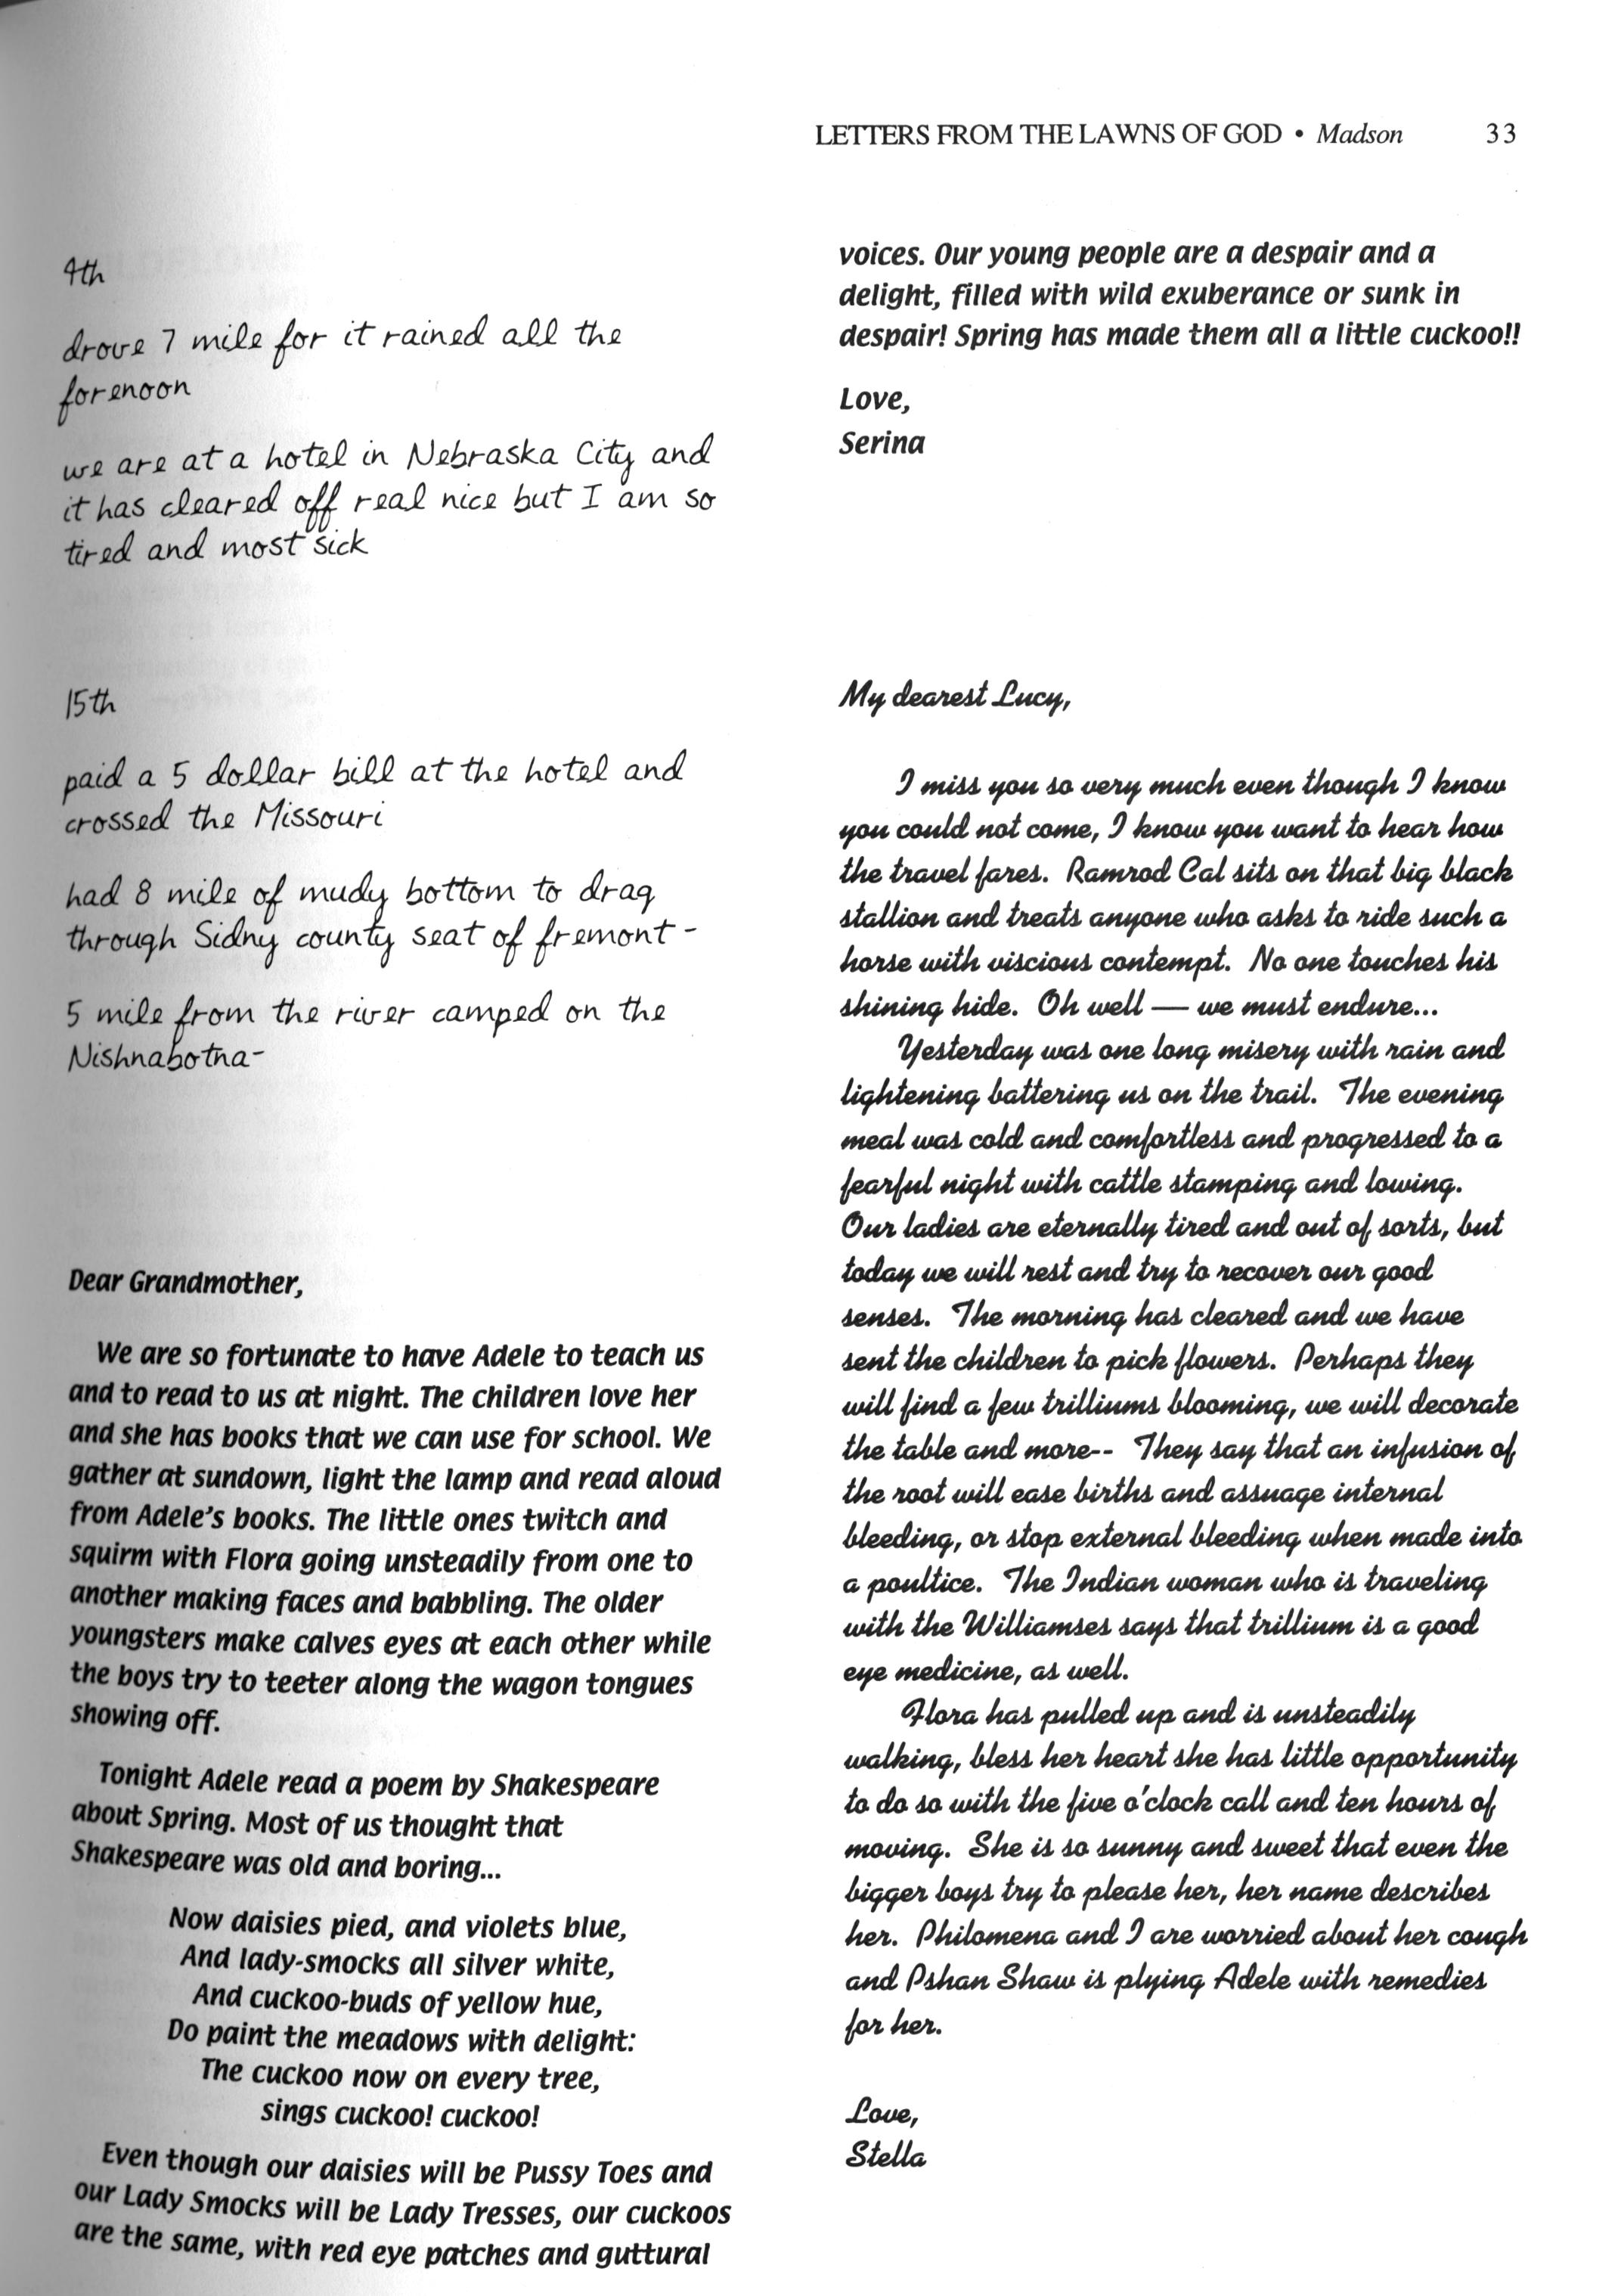 LETTERS FROM THE LAWNS OF GOD • Madson 33
4th
drove 7 mile for it rained all the
forenoon
we are at a hotel in Nebraska City and
it has cleared off real nice but I am so
tired and most sick
15th
paid a 5 dollar bill at the hotel and
crossed the Missouri
had 8 mile of mudy bottom to drag
through Sidny county seat of fremont -
5 mile from the river camped on the
Nishnabotna-
Dear Grandmother,
We are so fortunate to have Adele to teach us
and to read to us at night. The children love her
and she has books that we can use for school. We
gather at sundown, light the lamp and read aloud
from Adele's books. The little ones twitch and
squirm with Flora going unsteadily from one to
another making faces and babbling. The older
youngsters make calves eyes at each other while
the boys try to teeter along the wagon tongues
showing off.
Tonight Adele read a poem by Shakespeare
about Spring. Most of us thought that
Shakespeare was old and boring...
Now daisies pied, and violets blue,
And lady-smocks all silver white,
And cuckoo-buds of yellow hue,
Do paint the meadows with delight:
The cuckoo now on every tree,
sings cuckoo! cuckoo!
Even though our daisies will be Pussy Toes and
our Lady Smocks will be Lady Tresses, our cuckoos
are the same, with red eye patches and guttural
voices. Our young people are a despair and a
delight, filled with wild exuberance or sunk in
despair! Spring has made them all a little cuckoo!!
Love,
Serina
My dearest Lucy,
I miss you so very much even though I know
you could not come, I know you want to hear how
the travel fares. Ramrod Cal sits on that big black
stallion and treats anyone who asks to ride such a
horse with viscious contempt. No one touches his
shining hide. Oh well — we must endure...
Yesterday was one long misery with rain and
lightening battering us on the trail. The evening
meal was cold and comfortless and progressed to a
fearful night with cattle stamping and lowing.
Our ladies are eternally tired and out of sorts, but
today we will rest and try to recover our good
senses. The morning has cleared and we have
sent the children to pick flowers. Perhaps they
will find a few trilliums blooming, we will decorate
the table and more-- They say that an infusion of
the root will ease births and assuage internal
bleeding, or stop external bleeding when made into
a poultice. The Indian woman who is traveling
with the Williamses says that trillium is a good
eye medicine, as well.
Flora has pulled up and is unsteadily
walking, bless her heart she has little opportunity
to do so with the five o'clock call and ten hours of
moving. She is so sunny and sweet that even the
bigger boys try to please her, her name describes
her. Philomena and I are worried about her cough
and Pshan Shaw is plying Adele with remedies
for her.
Love,
Stella